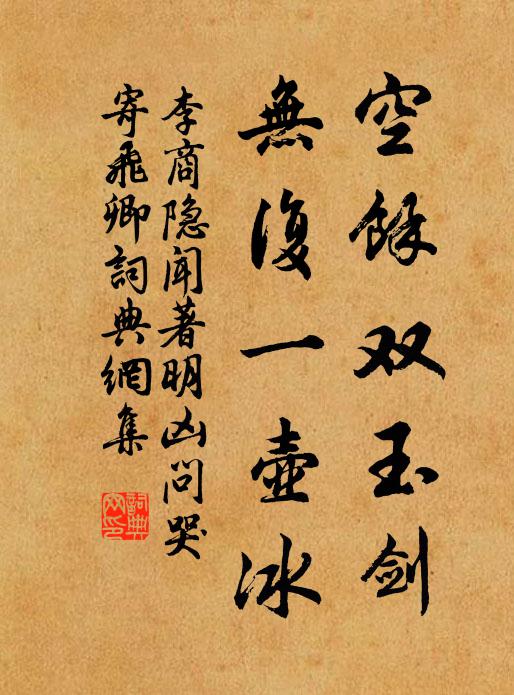 空餘双玉剑
無復一壺冰
李商隐闻著明凶问哭
寄飛卿詞典網集
詞典
网印